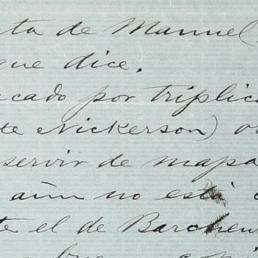 ta de Manuel
que dice.
cado por triplic
te Nickerson) o
servir de mapa
aún no está
te el de Barc